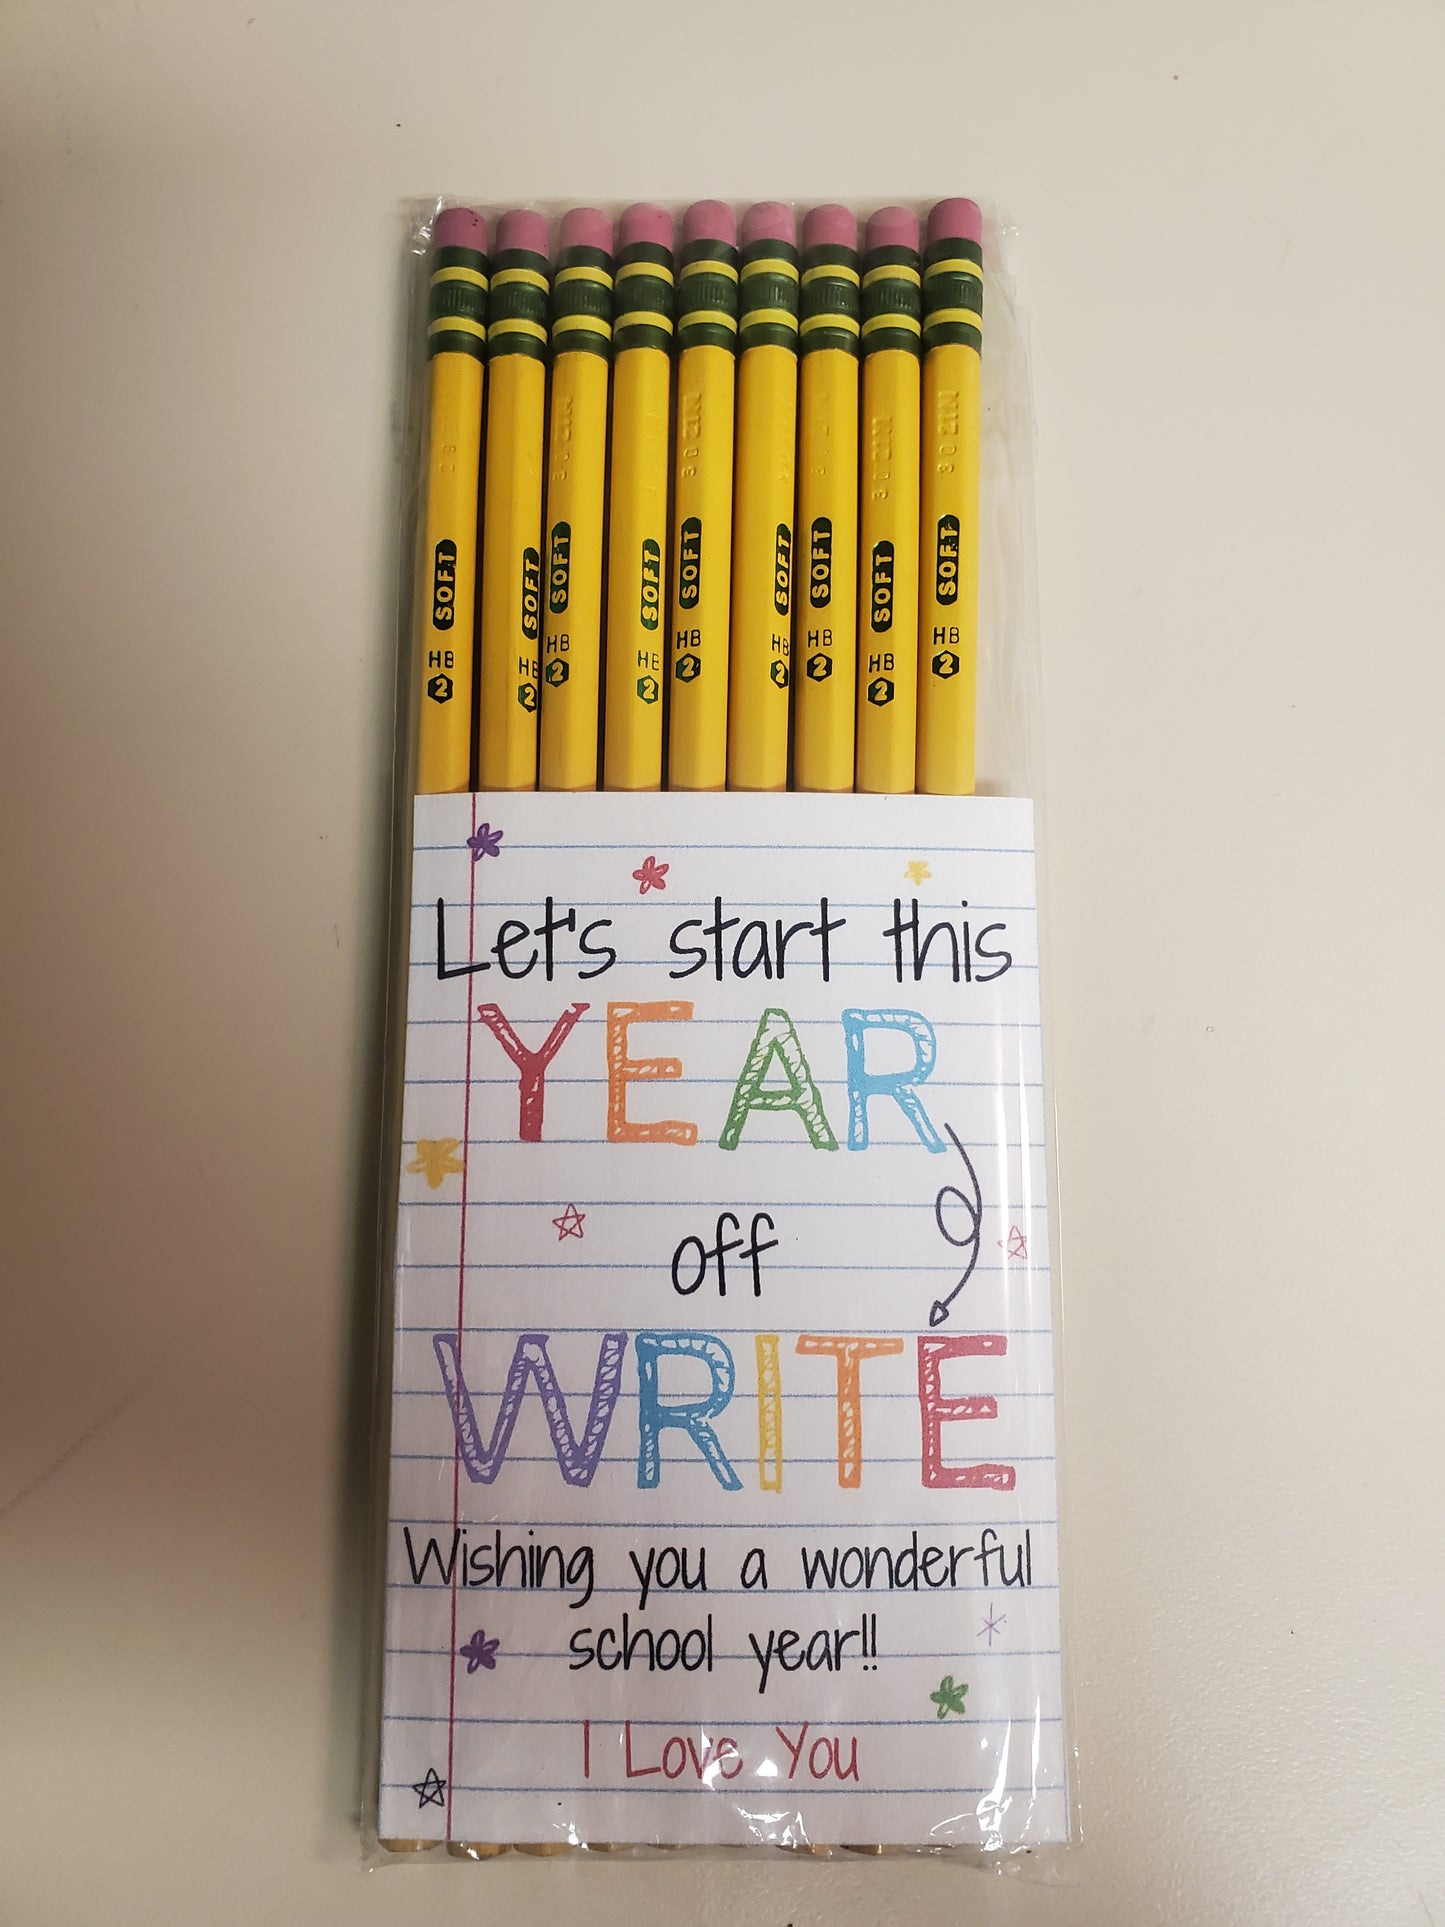 SOFT HB 2
SOFT HB 2
SOFT HB 2
SOFT HB 2
SOFT HB 2
SOFT HB 2
SOFT HB 2
SOFT HB 2
SOFT HB 2
Let's start this
YEAR
off
WRITE
Wishing you a wonderful
school year!!
I Love You